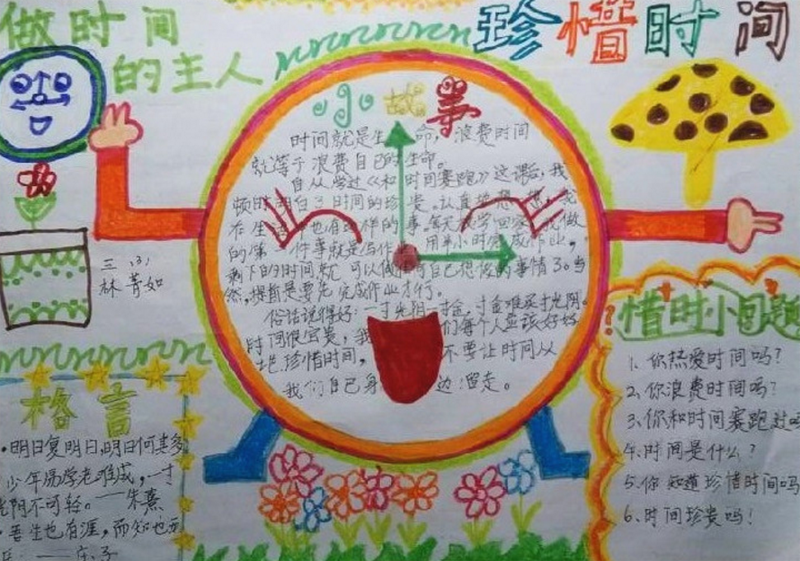 做时间
的主人
珍惜时间
小故事
时间就是生命，浪费时间
就等于浪费自己的生命。
自从学过《和时间赛跑》这课后，我
顿时明白了时间的珍贵。认真地想想，我
在生活中也有这样的事。每天放学回家，我做
的第一件事就是写作业，用半小时完成作业，
剩下的时间就可以做自己想做的事情了。当
然，提前是要先完成作业才行。
俗话说得好：一寸光阴一寸金，寸金难买寸光阴。
时间很宝贵，我们每个人应该好好
地珍惜时间，不要让时间从
我们自己身边溜走。
三（3）
林菁如
格言
·明日复明日，明日何其多
少年易学老难成，一寸
光阴不可轻。——朱熹
·吾生也有涯，而知也无
——庄子
惜时小问题
1、你热爱时间吗？
2、你浪费时间吗？
3、你和时间赛跑过吗
4、时间是什么？
5、你知道珍惜时间吗
6、时间珍贵吗！